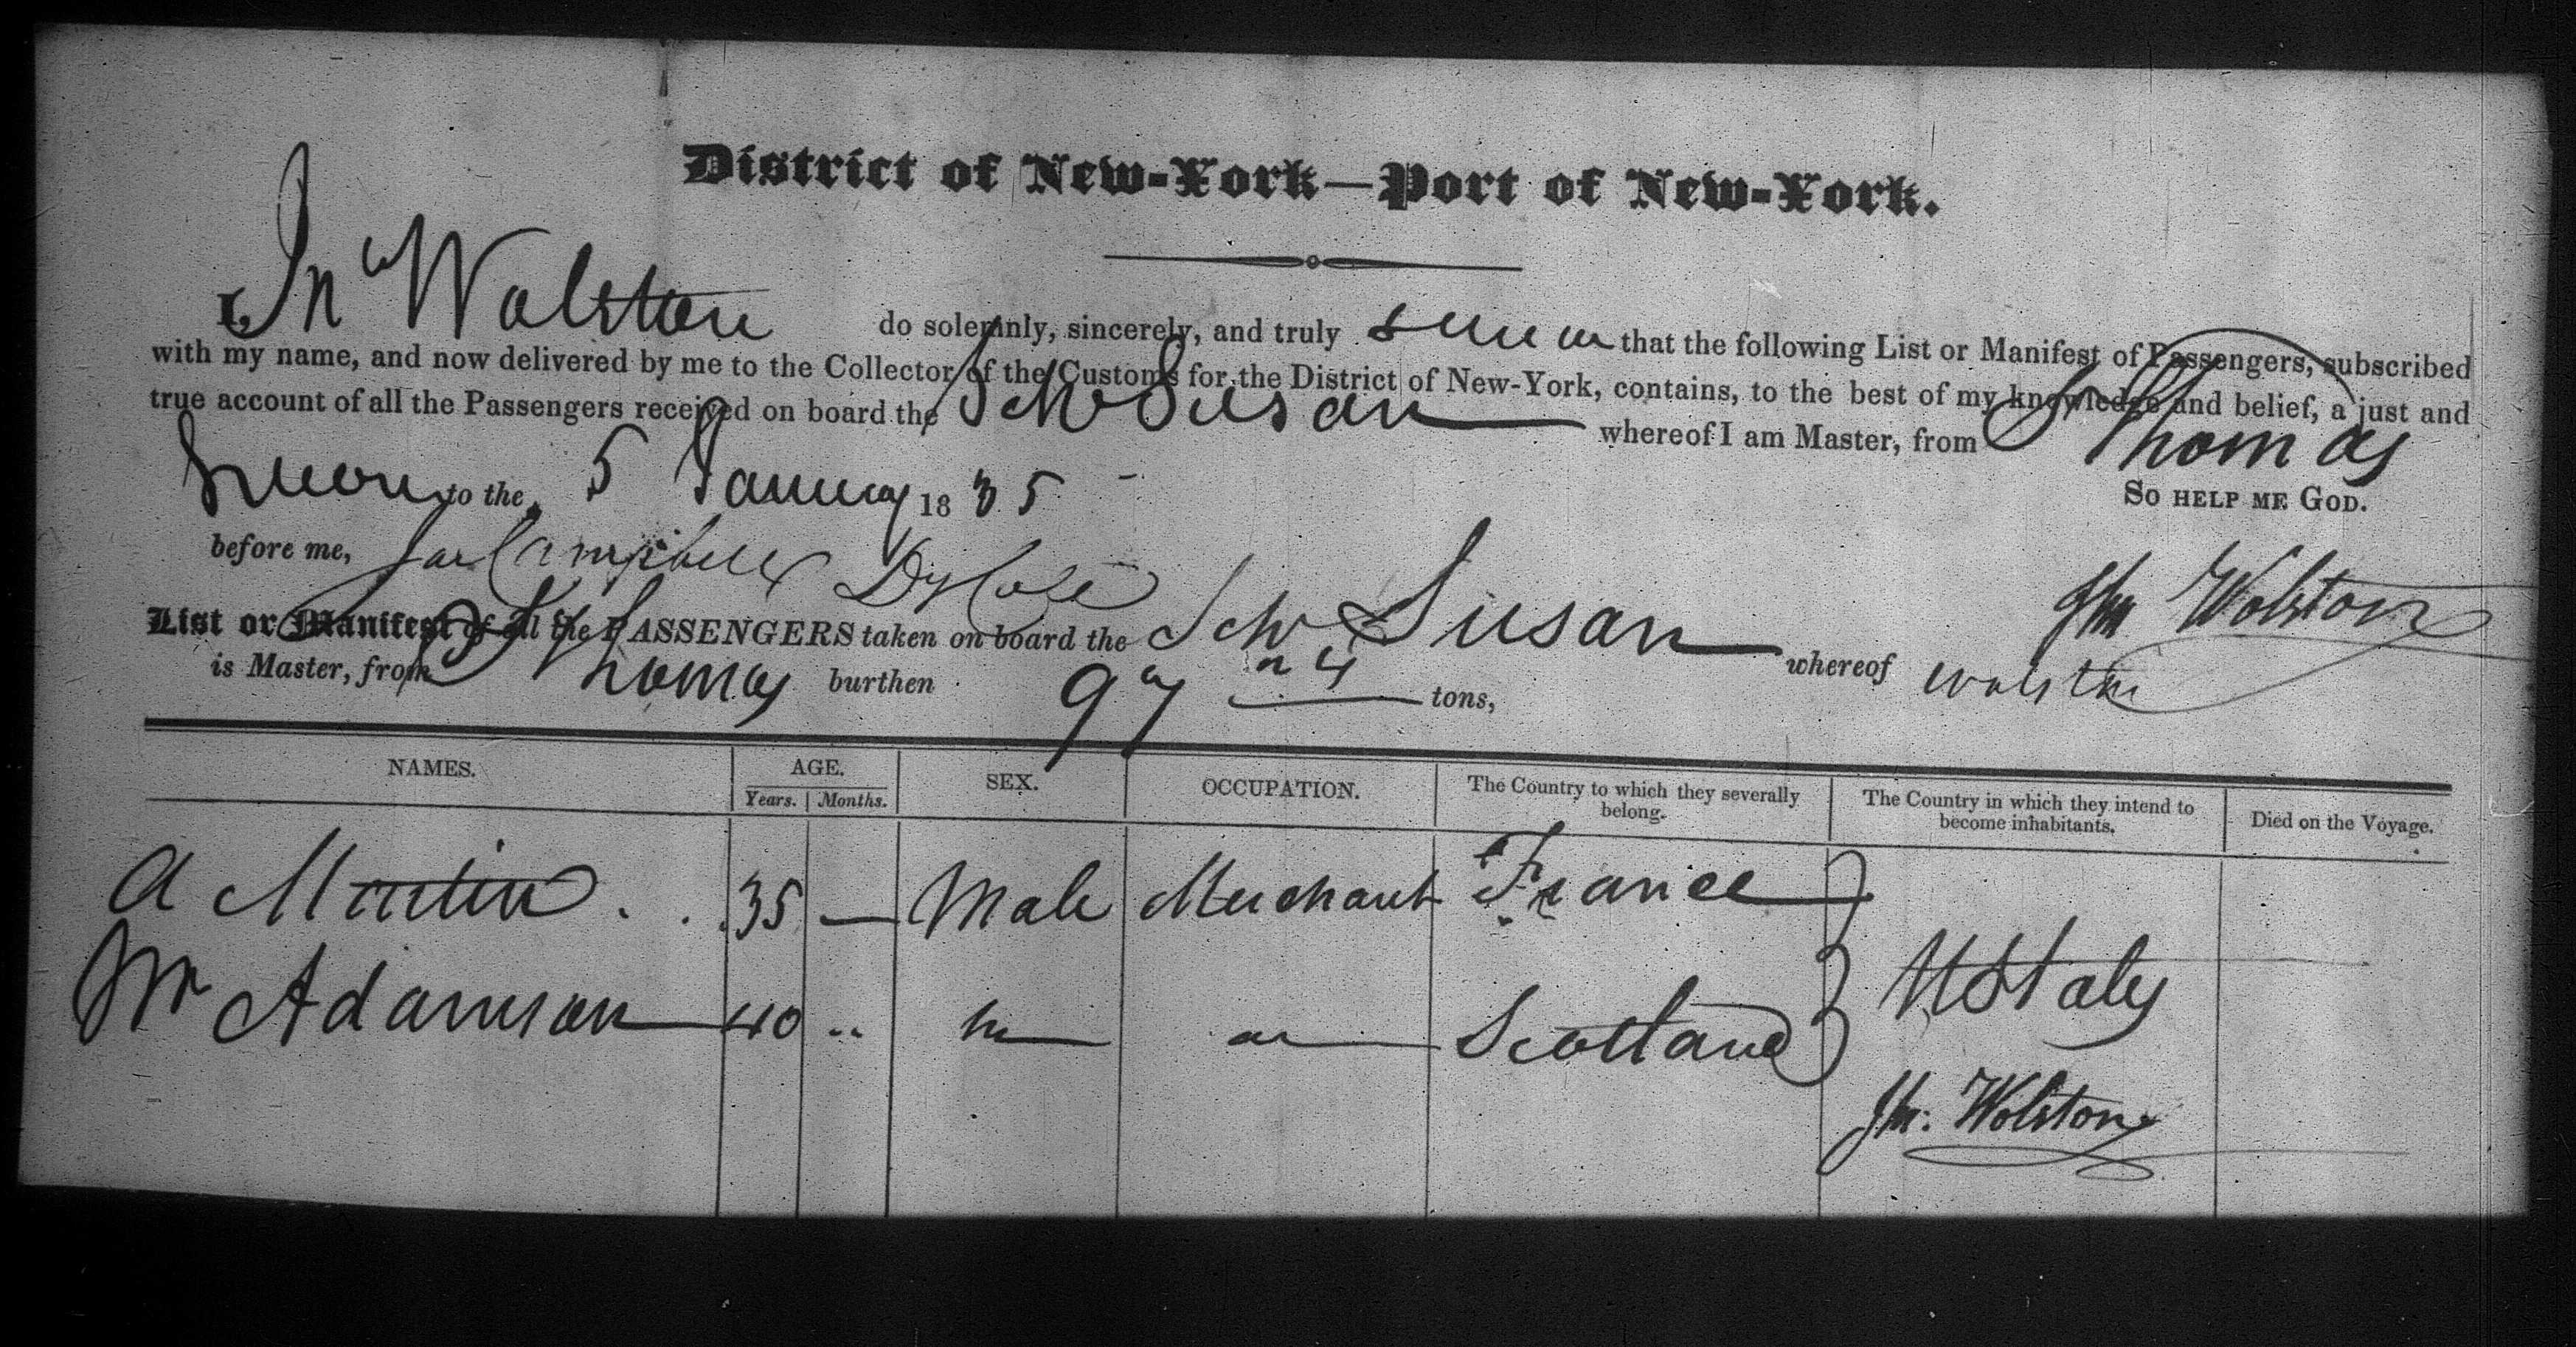 District of New-York—Port of New-York.
I, Jn Wolston do solemnly, sincerely, and truly swear that the following List or Manifest of Passengers, subscribed
with my name, and now delivered by me to the Collector of the Customs for the District of New-York, contains, to the best of my knowledge and belief, a just and
true account of all the Passengers received on board the Schr Susan whereof I am Master, from St Thomas
Sworn to the 5 January 1835
So help me God.
before me, Jas Campbell Dy Col
Jhn Wolston
List or Manifest of all the PASSENGERS taken on board the Schr Susan whereof Wolston
is Master, from St Thomas burthen 97 tons,
NAMES. AGE. SEX. OCCUPATION. The Country to which they severally belong. The Country in which they intend to become inhabitants. Died on the Voyage.
Years. Months.
A Martin 35 — Male Merchant France
Mr Adamson 40 " Scotland
Jhn: Wolston